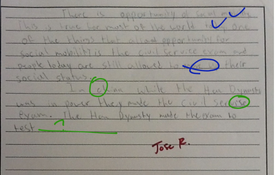 There is opportunity of social mobility
This is true for most of the world for one
of the things that allowed opportunity for
social mobility is the civil service exam and
people today are still allowed to these
social status.
In China while the Han Dynasty
was in power they made the civil service
Exam. The Han Dynasty made the exam to
test ?
Jose R.